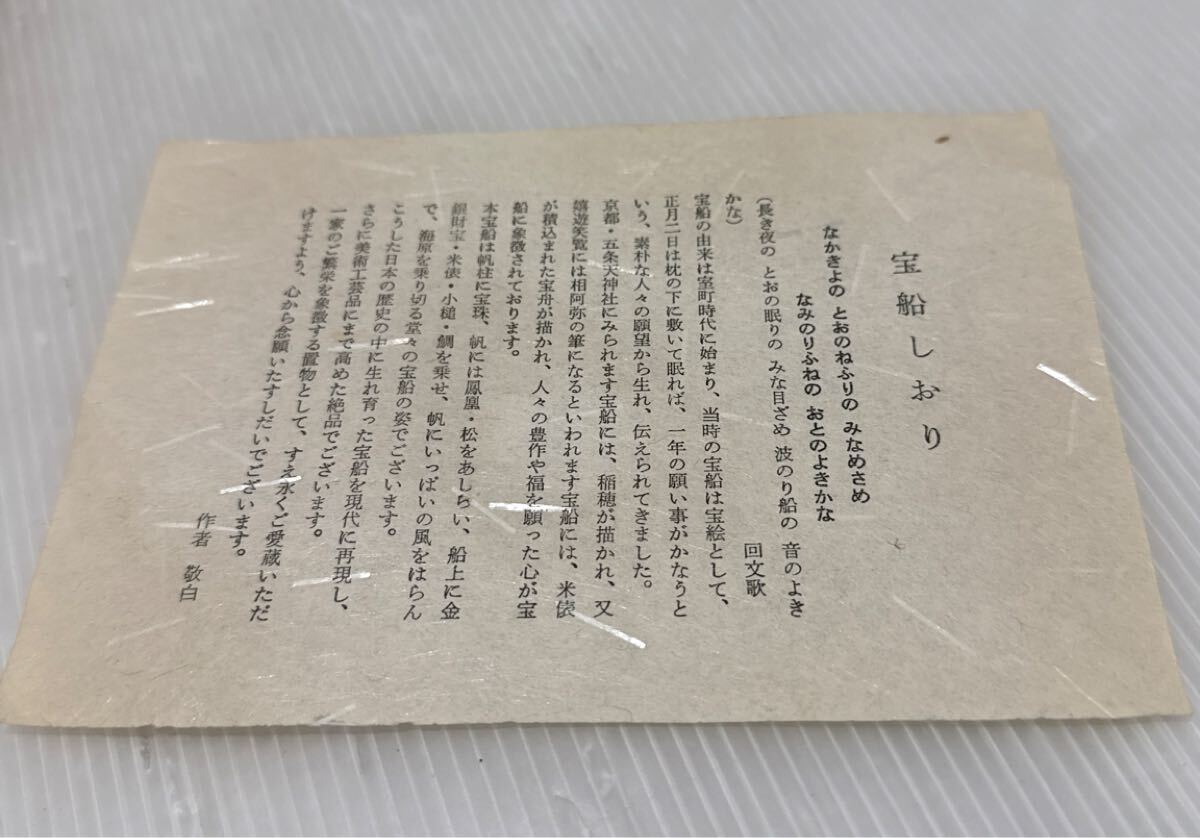 宝船しおり
なかきよの とおのねふりの みなめさめ
なみのりふねの おとのよきかな
(長き夜の とおの眠りの みな目ざめ 波のり船の 音のよき
かな)
回文歌
宝船の由来は室町時代に始まり、当時の宝船は宝絵として、
正月二日は枕の下に敷いて眠れば、一年の願い事がかなうと
いう、素朴な人々の願望から生れ、伝えられてきました。
京都・五条天神社にみられます宝船には、稲穂が描かれ、又
嬉遊笑覧には相阿弥の筆になるといわれます宝船には、米俵
が積込まれた宝舟が描かれ、人々の豊作や福を願った心が宝
船に象徴されております。
本宝船は帆柱に宝珠、帆には鳳凰・松をあしらい、船上に金
銀財宝・米俵・小槌・鯛を乗せ、帆にいっぱいの風をはらん
で、海原を乗り切る堂々の宝船の姿でございます。
こうした日本の歴史の中に生れ育った宝船を現代に再現し、
さらに美術工芸品にまで高めた絶品でございます。
一家のご繁栄を象徴する置物として、すえ永くご愛蔵いただ
けますよう、心から念願いたすしだいでございます。
作者 敬白